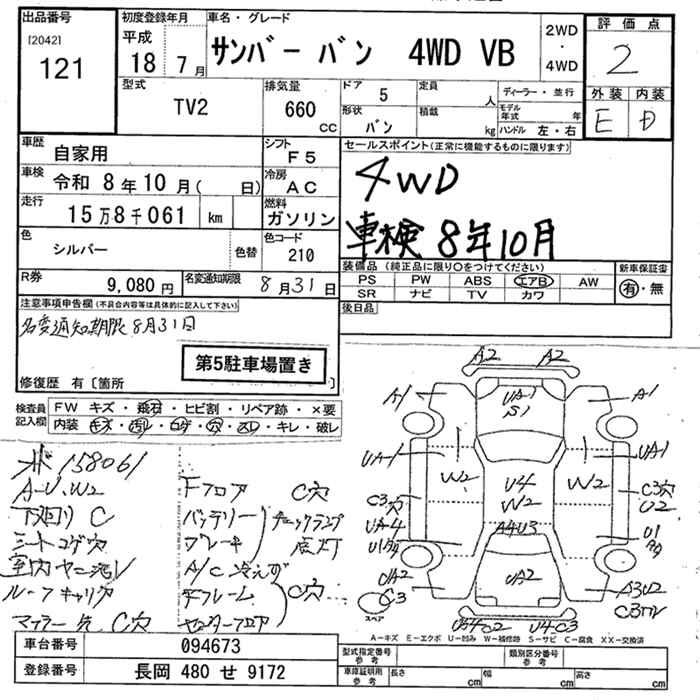 出品番号 初度登録年月 車名・グレード 2WD・4WD 評価点
[2042] 平成
121 18 7月 サンバー バン 4WD VB 2
型式 排気量 ドア 5 定員 人 ディーラー・並行 外装 内装
TV2 660 CC 形状 バン 積載 kg モデル年式 年 ハンドル 左・右 E D
車歴 自家用 シフト F5 セールスポイント(正常に機能するものに限ります)
車検 令和 8年10月( 日) 冷房 AC 4WD
走行 15万8千061 km 燃料 ガソリン 車検 8年10月
色 シルバー 色替 色コード 210
R券 9,080円 名変通知期限 8月31日 装備品(純正品に限り○をつけてください) 新車保証書
PS PW ABS エアB AW 有・無
SR ナビ TV カワ
注意事項申告欄(不具合内容等は具体的に記入して下さい) 後日品
名変通知期限8月31日
第5駐車場置き
修復歴 有〔箇所
検査員記入欄 FW キズ・飛石・ヒビ割・リペア跡・×要
内装・キズ・汚れ・コゲ・穴・スレ・キレ・破レ
158061
A-U、W2 Fフロア C穴
下廻り C バッテリー チェックランプ
シートコゲ穴 ブレーキ 点灯
室内ヤニ汚レ A/C 冷えず
ルーフキャリア穴 Fフレーム C穴
マフラー C穴 センターフロア
A2 A2
A1 UA1 A1
S1
UA1 UA1
W2 U4 W2
W2
C3穴 C3穴
UA4 A4U3 U2
U1 U1
UA2 UA2 A3U2
C3
スペア U4C3
A－キズ E－エクボ U－凹み W－補修跡 S－サビ C－腐食 XX－交換済
車台番号 094673 型式指定番号 参考 類別区分番号 参考
登録番号 長岡 480 せ 9172 車庫証明用 参考 長さ cm 幅 cm 高さ cm